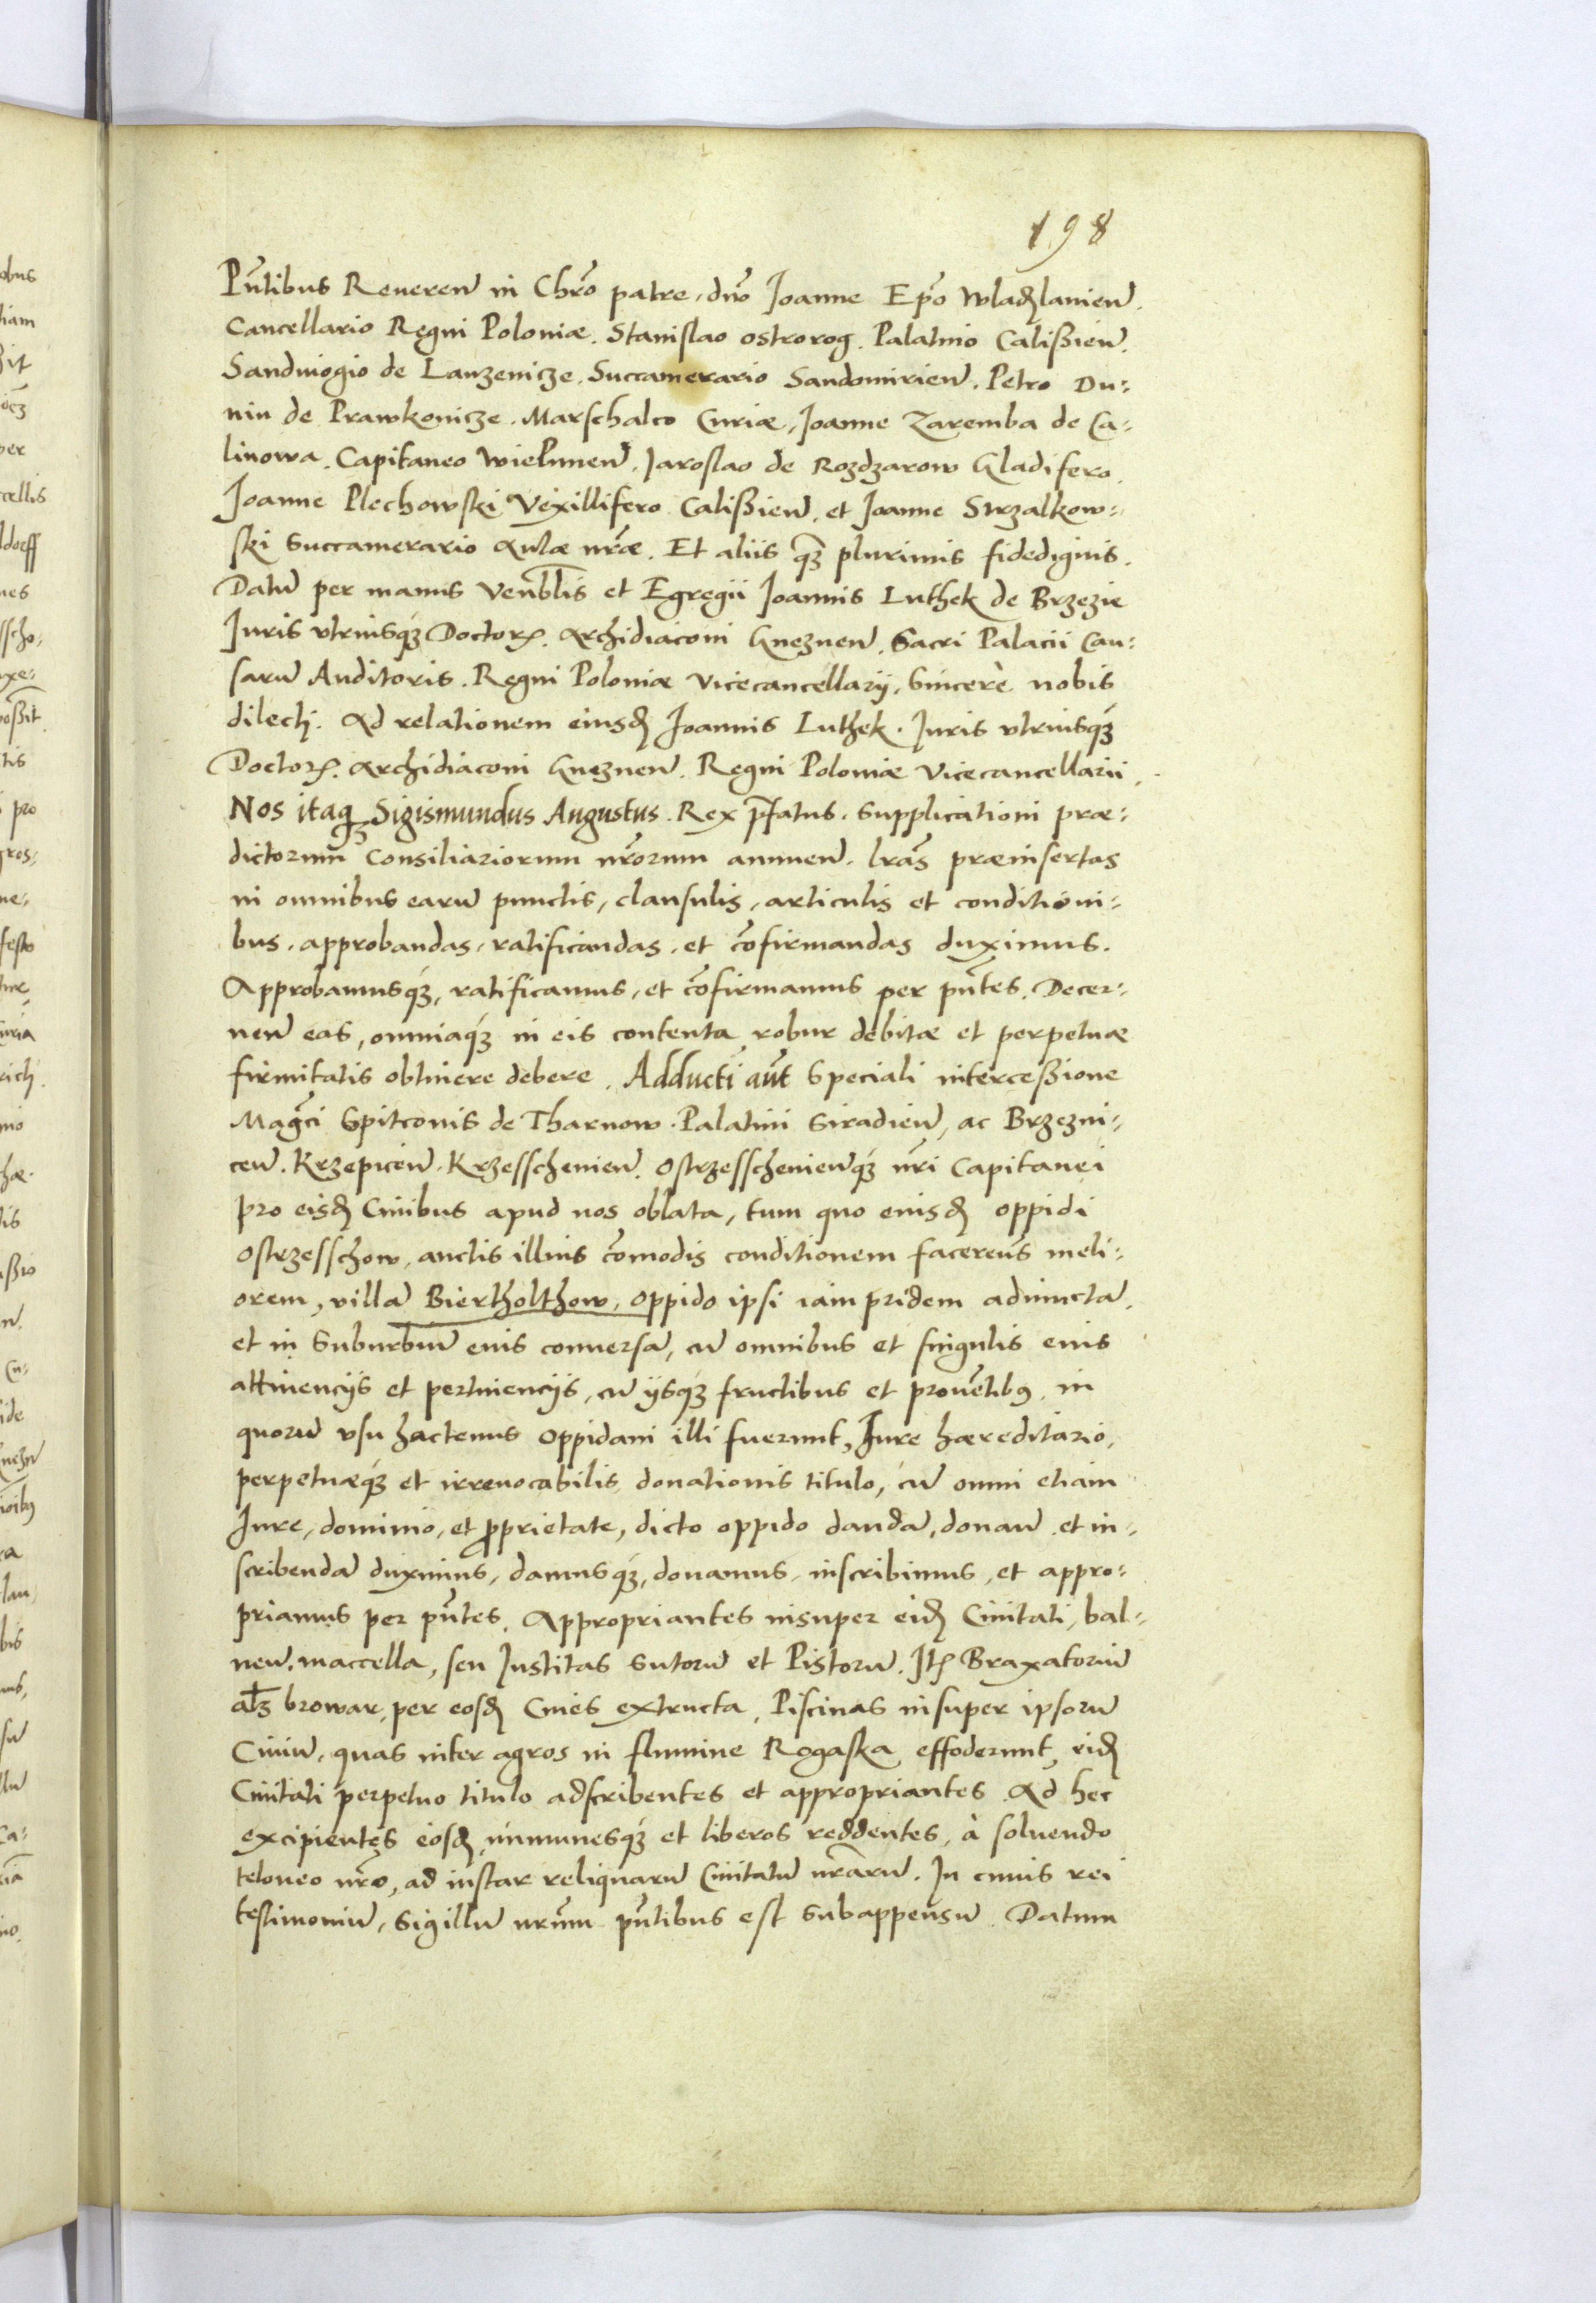 198
Pñtibus Reueren̄ in Chr̃o patre, dn̄o Ioanne Ep̃o Wladislauien̄.
Cancellario Regni Poloniæ. Stanislao ostrorog. Palatino Calißien̄.
Sandiuogio de Lanzenicze. Succamerario Sandomirien̄. Petro Du:
nin de Prawkonicze. Marschalco Curiæ, Ioanne Zaremba de Ca:
linowa. Capitaneo Wielunen̄. Jaroslao de Rozdzarow Gladifero.
Joanne Plechowski Vexillifero Calißien̄. et Joanne Strzalkow:
ski Succamerario Aulæ nr̃æ. Et aliis q̃ꝫ plurimis fidedignis.
Datū per manus Venl̃lis et Egregii Joannis Luthek de Brzezie
Juris vtriusqꝫ Doctoꝝ. Archidiaconi Gneznen̄. Sacri Palacii Cau:
sarū Auditoris. Regni Poloniæ Vicecancellarÿ, Sincerè nobis
dilecti. Ad relationem eiusdꝫ Joannis Luthek. Juris vtriusqꝫ
Doctoꝝ. Archidiaconi Gneznen̄. Regni Poloniæ Vicecancellarii.
Nos itaqꝫ Sigismundus Augustus. Rex p̃fatus. Supplicationi præ:
dictorum Consiliariorum nr̃orum annuen̄. lr̃as præinsertas
in omnibus earū punctis, clausulis, articulis et conditioni:
bus. approbandas, ratificandas. et cõfirmandas duximus.
Approbamusqꝫ, ratificamus, et cõfirmamus per pñtes. Decer:
nen̄ eas, omniaqꝫ in eis contenta robur debitæ et perpetuæ
firmitatis obtinere debere. Adducti aũt Speciali intercessione
Magc̃i Spitconis de Tharnow. Palatini Siradien̄, ac Brzezni:
cen̄. Krzepicen̄. Krzesschenien̄. Ostrzesschenienqꝫ nr̃i Capitanei
pro eisdꝫ Ciuibus apud nos oblata, tum quo eiusdꝫ oppidi
Ostrzesschow, auctis illius cõmodis conditionem faceremus meli:
orem, villā Biertholthow, oppido ipsi iampridem adiunctā.
et in Suburbiū eius conuersā, cū omnibus et singulis eius
attinencÿs et pertinencÿs, cū ÿsqꝫ fructibus et prouẽtibꝰ. in
quorū vsu hactenus oppidani illi fuerunt, Jure hæreditario,
perpetuæqꝫ et irreuocabilis donationis titulo, cū omni etiam
Jure, dominio, et ꝓprietate, dicto oppido dandā, donan̄. et in:
scribendā duximus, damusqꝫ, donamus, inscribimus, et appro:
priamus per pñtes. Appropriantes insuper eidꝫ Ciuitati, bal:
neū. maccella, seu Justitas Sutorū et Pistorū. Itꝫ Braxatoriū
al̃s browar, per eosdꝫ Ciues extructa, Piscinas insuper ipsorū
Ciuiū, quas inter agros in flumine Rogaska effoderunt, eidꝫ
Ciuitati perpetuo titulo adscribentes et appropriantes. Ad hec
excipientes eosdꝫ, immunesqꝫ et liberos reddentes, à soluendo
teloneo nr̃o, ad instar reliquarū Ciuitatū nr̃arū. In cuius rei
testimoniū, Sigillū nr̃um pñtibus est Subappensū. Datum